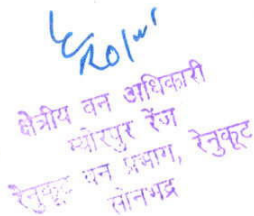 क्षेत्रीय वन अधिकारी
म्योरपुर रेंज
रेनुकूट वन प्रभाग, रेनुकूट
सोनभद्र